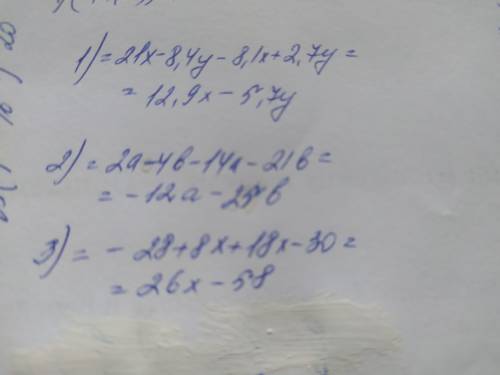 1) = 21x - 8,4y - 8,1x + 2,7y =
= 12,9x - 5,7y
2) = 2a - 4b - 14a - 21b =
= - 12a - 25b
3) = - 28 + 8x + 18x - 30 =
= 26x - 58